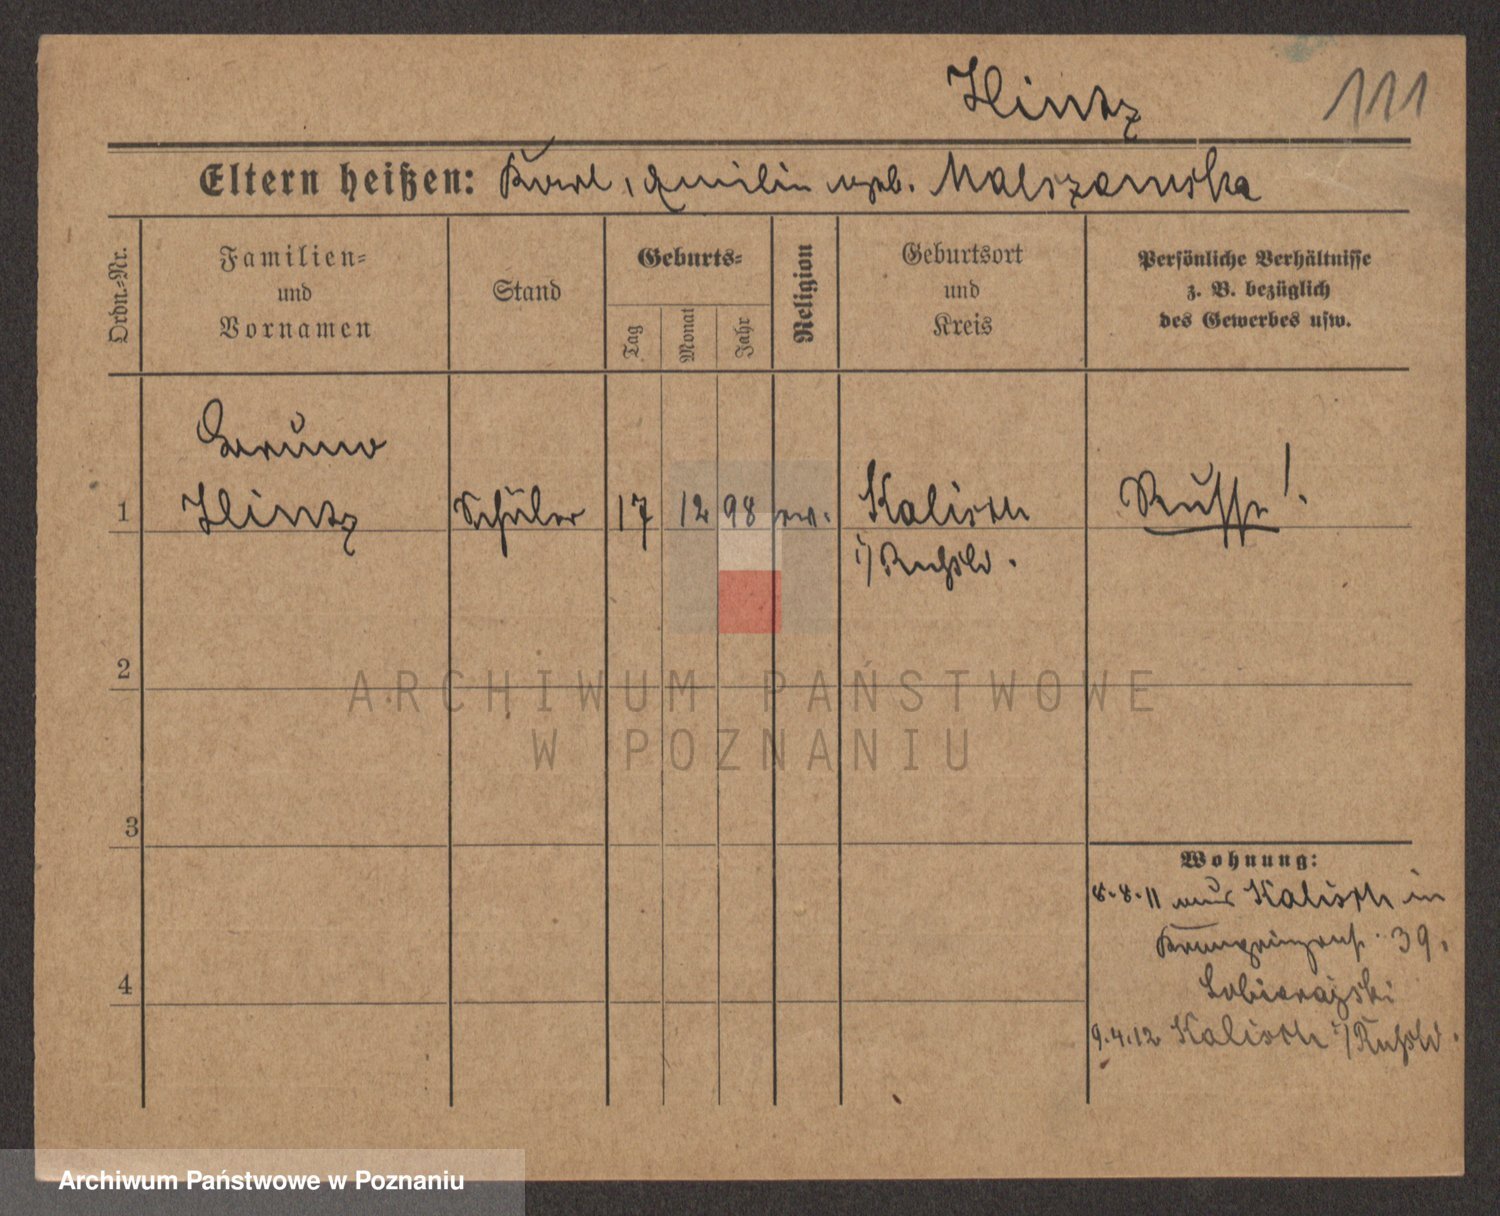 Hintz
111
Eltern heißen: Karl, Emilie geb. Malszewska
Ordn.-Nr.
Familien-
und
Vornamen
Stand
Geburts-
Tag
Monat
Jahr
Religion
Geburtsort
und
Kreis
Persönliche Verhältnisse
z. B. bezüglich
des Gewerbes usw.
Bruno
1 Hintz Schüler 17 12 98 ev. Kalisch Russe!
i/Rußld.
2
ARCHIWUM PAŃSTWOWE
W POZNANIU
3
Wohnung:
8.8.11 aus Kalisch in
Kronprinzenst. 39.
4
9.4.12 Kalisch i/Rußld.
Archiwum Państwowe w Poznaniu